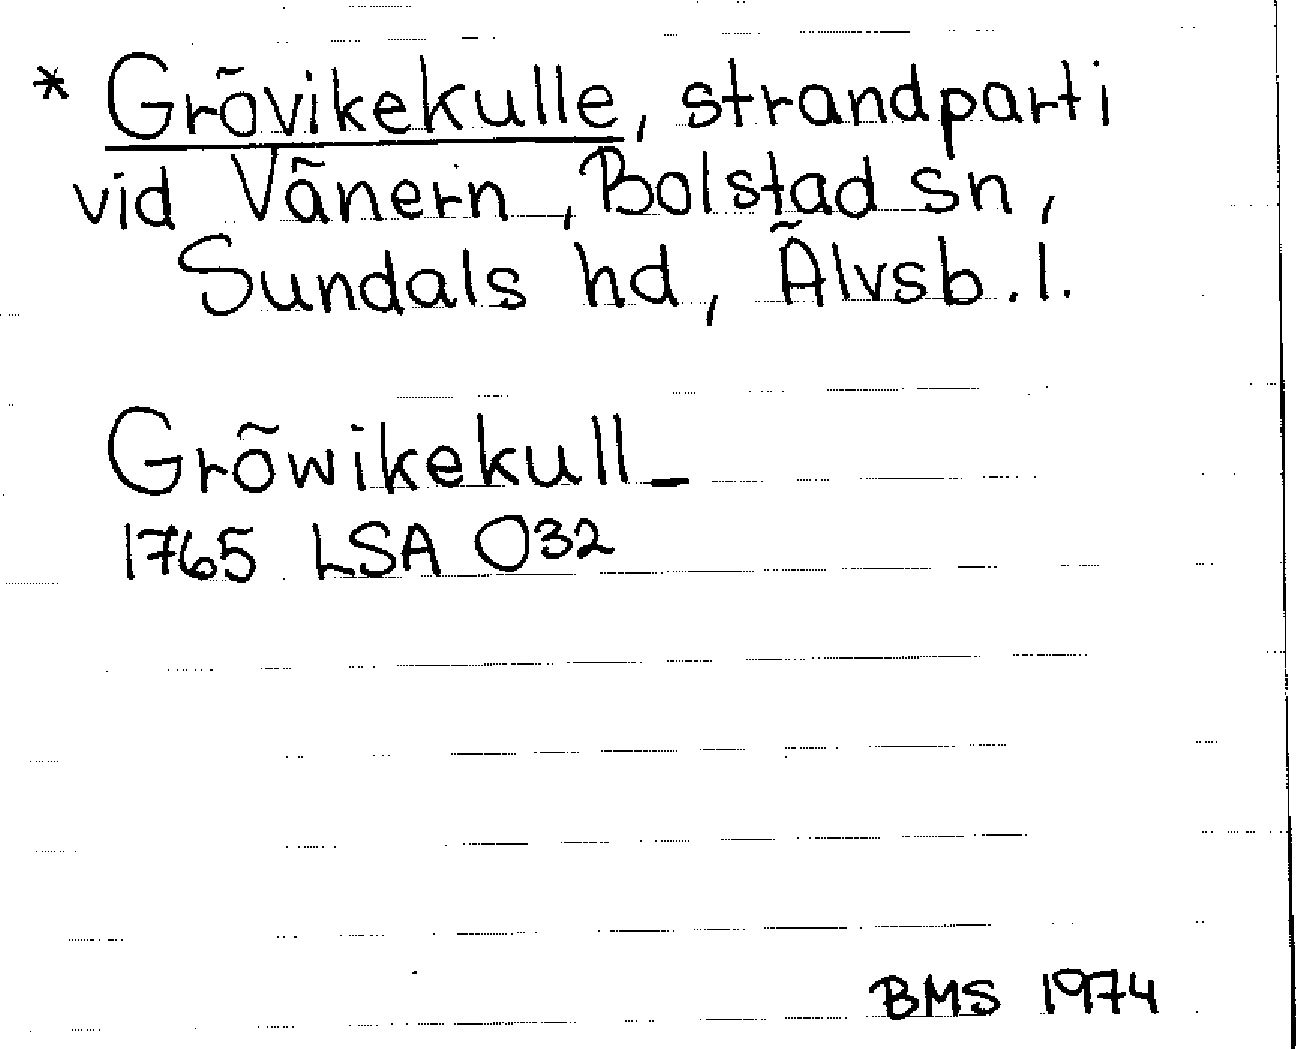 * Grövikekulle, strandparti
vid Vänern, Bolstad sn,
Sundals hd, Älvsb. l.
Gröwikekull_
1765 LSA O32
BMS 1974